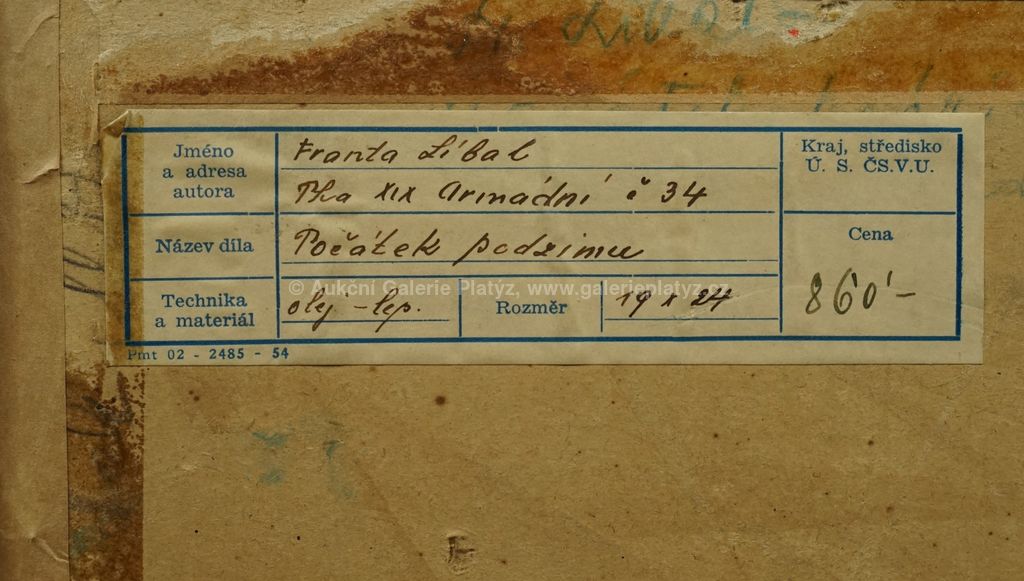 Jméno a adresa autora
Franta Líbal
Pha XIX Armádní č 34
Kraj, středisko
Ú. S. ČS.V.U.
Název díla
Počátek podzimu
Cena
860'-
Technika a materiál
olej - lep.
Rozměr
19 x 24
© Aukční Galerie Platýz, www.galerieplatyz.cz
Pmt 02 - 2485 - 54